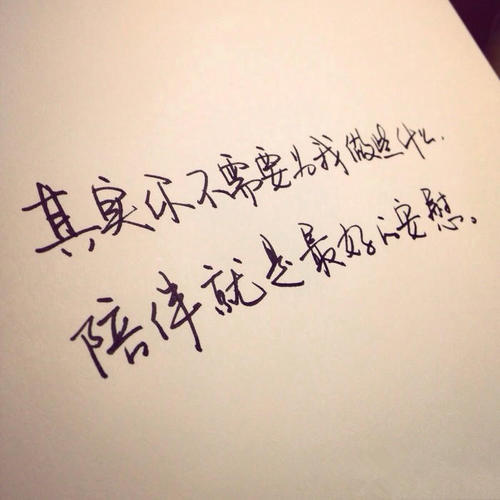 其实你不需要为我做些什么.
陪伴就是最好的安慰。